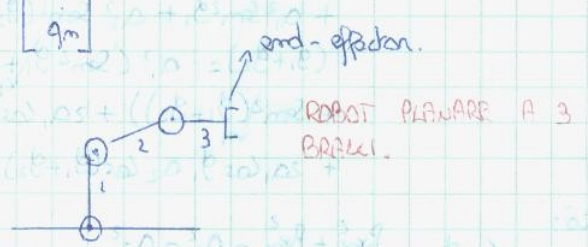 qn
end-effector.
ROBOT PLANARE A 3
BRACCI.
2
3
1